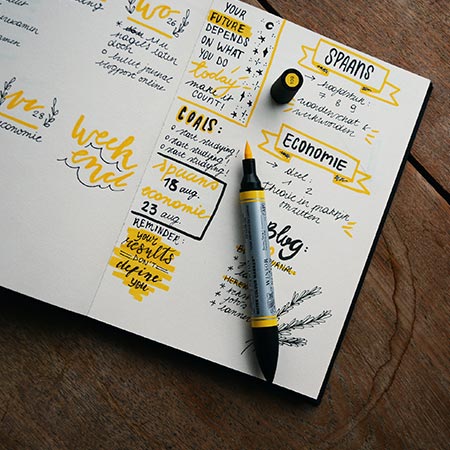 WO
26
nagels laten
doen!
bullet journal
blogpost online
28
economie
week
end
YOUR
FUTURE
DEPENDS
ON WHAT
YOU DO
today
make it
COUNT!
GOALS:
start studying!
start studying!
start studying!
spaans
18 aug.
economie
23 aug.
REMINDER:
your
results
DON'T
define
you
SPAANS
hoofdstuk:
7 8 9
woordenschat &
werkwoorden
ECONOMIE
deel:
1 2
theorie in praktijk
omzetten
Blog: